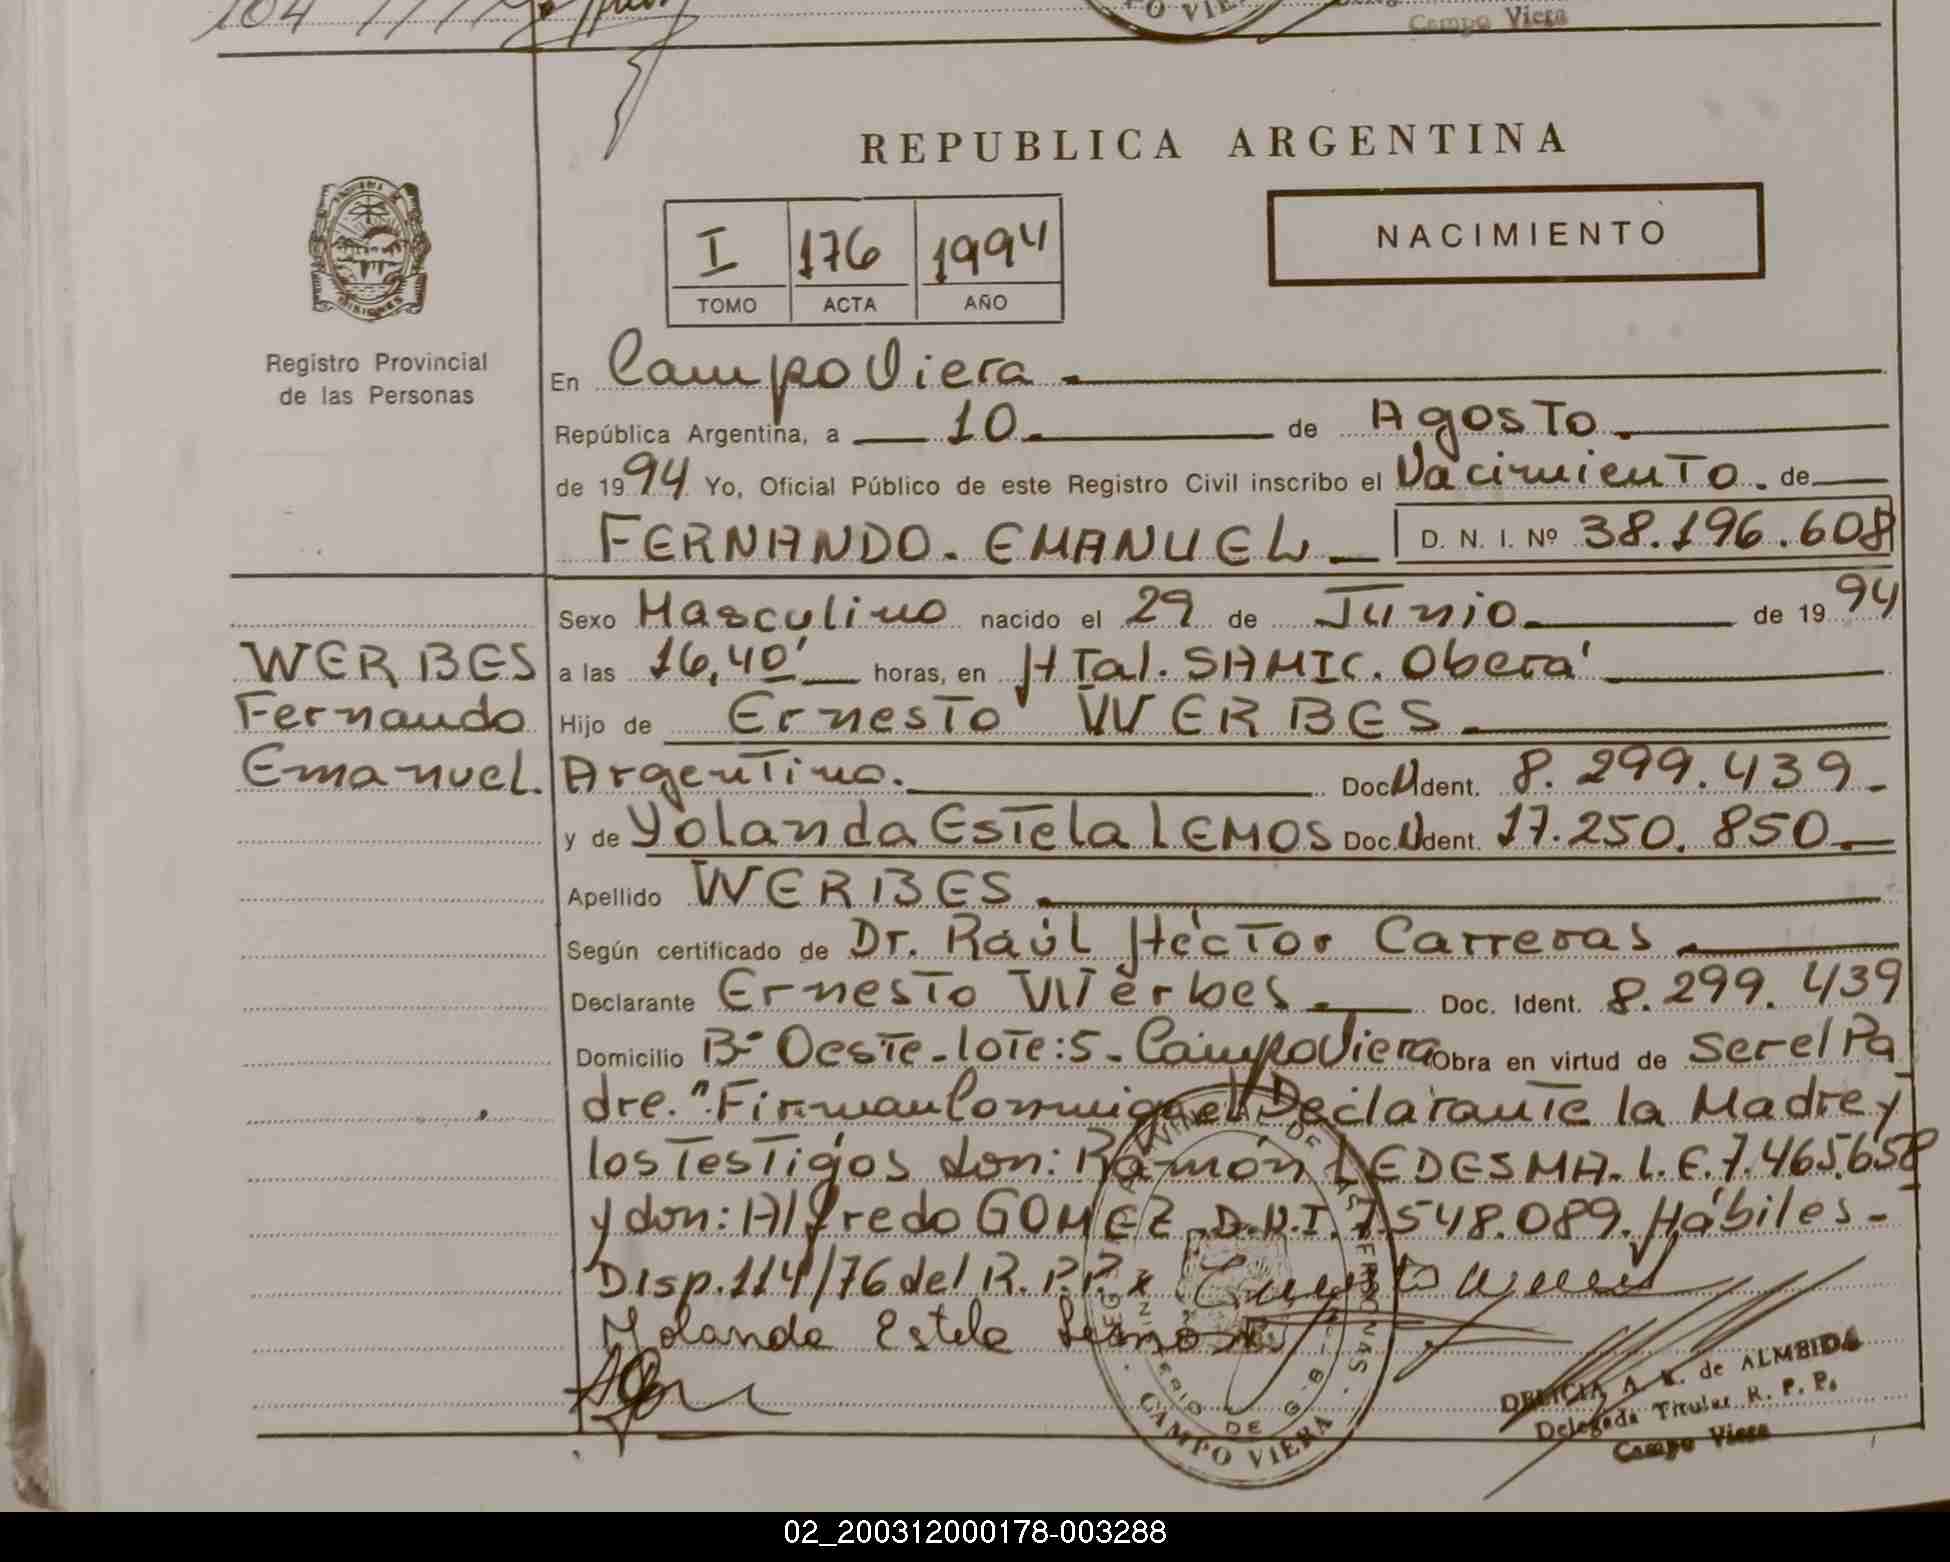 104
Campo Viera
REPUBLICA ARGENTINA
NACIMIENTO
I 176 1994
TOMO ACTA AÑO
MISIONES
Registro Provincial
de las Personas
En Campo Viera
República Argentina, a 10 de Agosto
de 1994 Yo, Oficial Público de este Registro Civil inscribo el Nacimiento. de
FERNANDO. EMANUEL D. N. I. Nº 38.196.608
Sexo Masculino nacido el 29 de Junio de 1994
WERBES
Fernando
Emanuel.
a las 16,40' horas, en HTal. SAMIC. Oberá
Hijo de Ernesto WERBES
Argentino. Doc.N.Ident. 8.299.439
y de Yolanda Estela LEMOS Doc.N.Ident. 17.250.850
Apellido WERBES
Según certificado de Dr. Raúl Héctor Carreras
Declarante Ernesto Werbes. Doc. Ident. 8.299.439
Domicilio Bº Oeste-lote:5-Campo Viera Obra en virtud de ser el Pa
dre.". Firman Conmigo el Declarante la Madre y
los Testigos don: Ramón LEDESMA. L.E. 7.465.658
y don: Alfredo GOMEZ. D.N.I. 7.548.089. Hábiles-
Disp. 114/76 del R.P.P. x
Yolanda Estela Lemos
CAMPO VIERA
DELICIA A. K. de ALMEIDA
Delegada Titular R. P. P.
Campo Viera
02_200312000178-003288